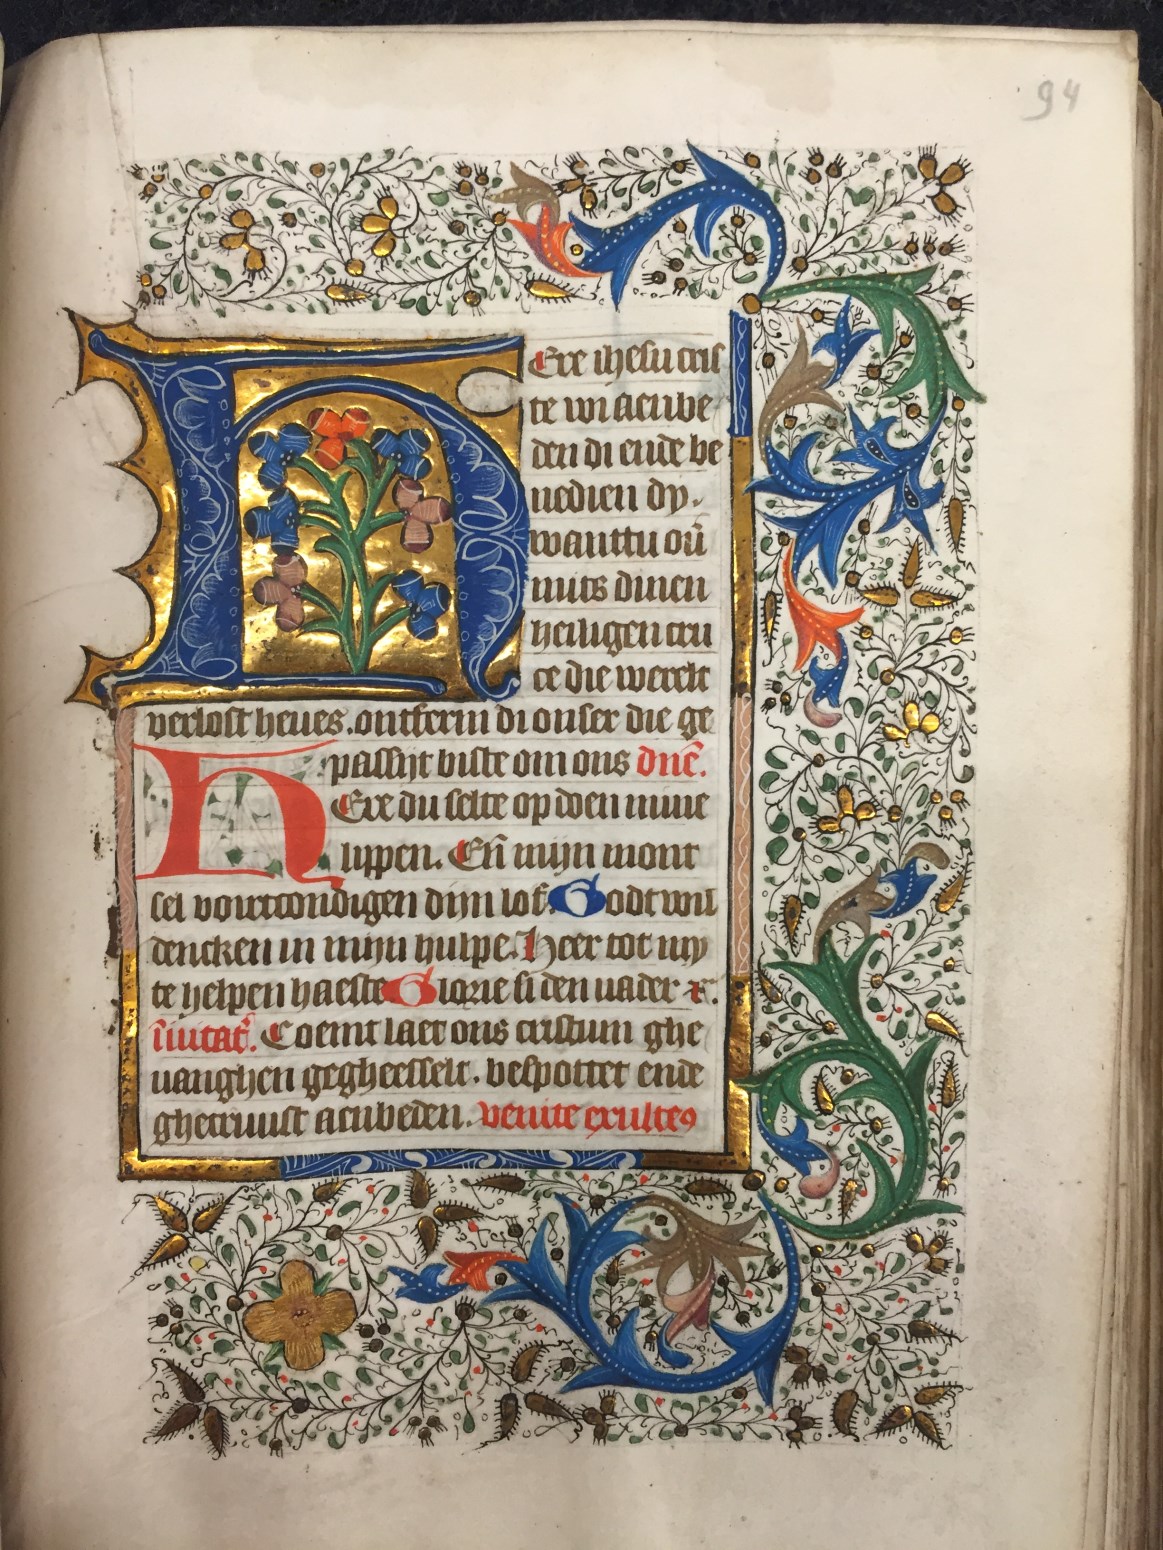 94
HEre ihesu cris
te wi aenbe
den di ende be
nedien dy.
wanttu oũ
mits dinen
heiligen cru
ce die werelt
verlost heues. ontferm di onser die ge
passijt biste om ons dnẽ.
HEre du selte op doen mine
lippen. Eñ mijn mont
sel vourtcondigen dijn lof. Godt wil
dencken in mijn hulpe. Heer tot my
te helpen haeste Glorie si den uader ⁊c̃.
Inuitat̃. Coemt laet ons cristum ghe
uanghen ghegheesselt. bespottet ende
ghecruust aenbeden. venite exulteꝯ